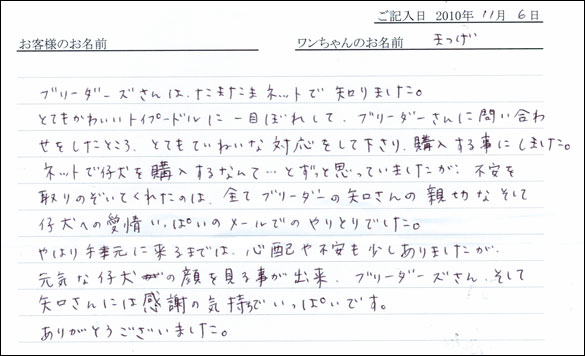 ご記入日 2010年 11月 6日
お客様のお名前 ワンちゃんのお名前 まつげ
ブリーダーズさんは、たまたまネットで知りました。
とてもかわいいトイプードルに一目ぼれして、ブリーダーさんに問い合わ
せをしたところ、とてもていねいな対応をして下さり、購入する事にしました。
ネットで仔犬を購入するなんて…とずっと思っていましたが、不安を
取りのぞいてくれたのは、全てブリーダーの矢口さんの親切なそして
仔犬への愛情いっぱいのメールでのやりとりでした。
やはり手元に来るまでは、心配や不安も少しありましたが、
元気な仔犬の顔を見る事が出来、ブリーダーズさん、そして
矢口さんには感謝の気持ちでいっぱいです。
ありがとうございました。